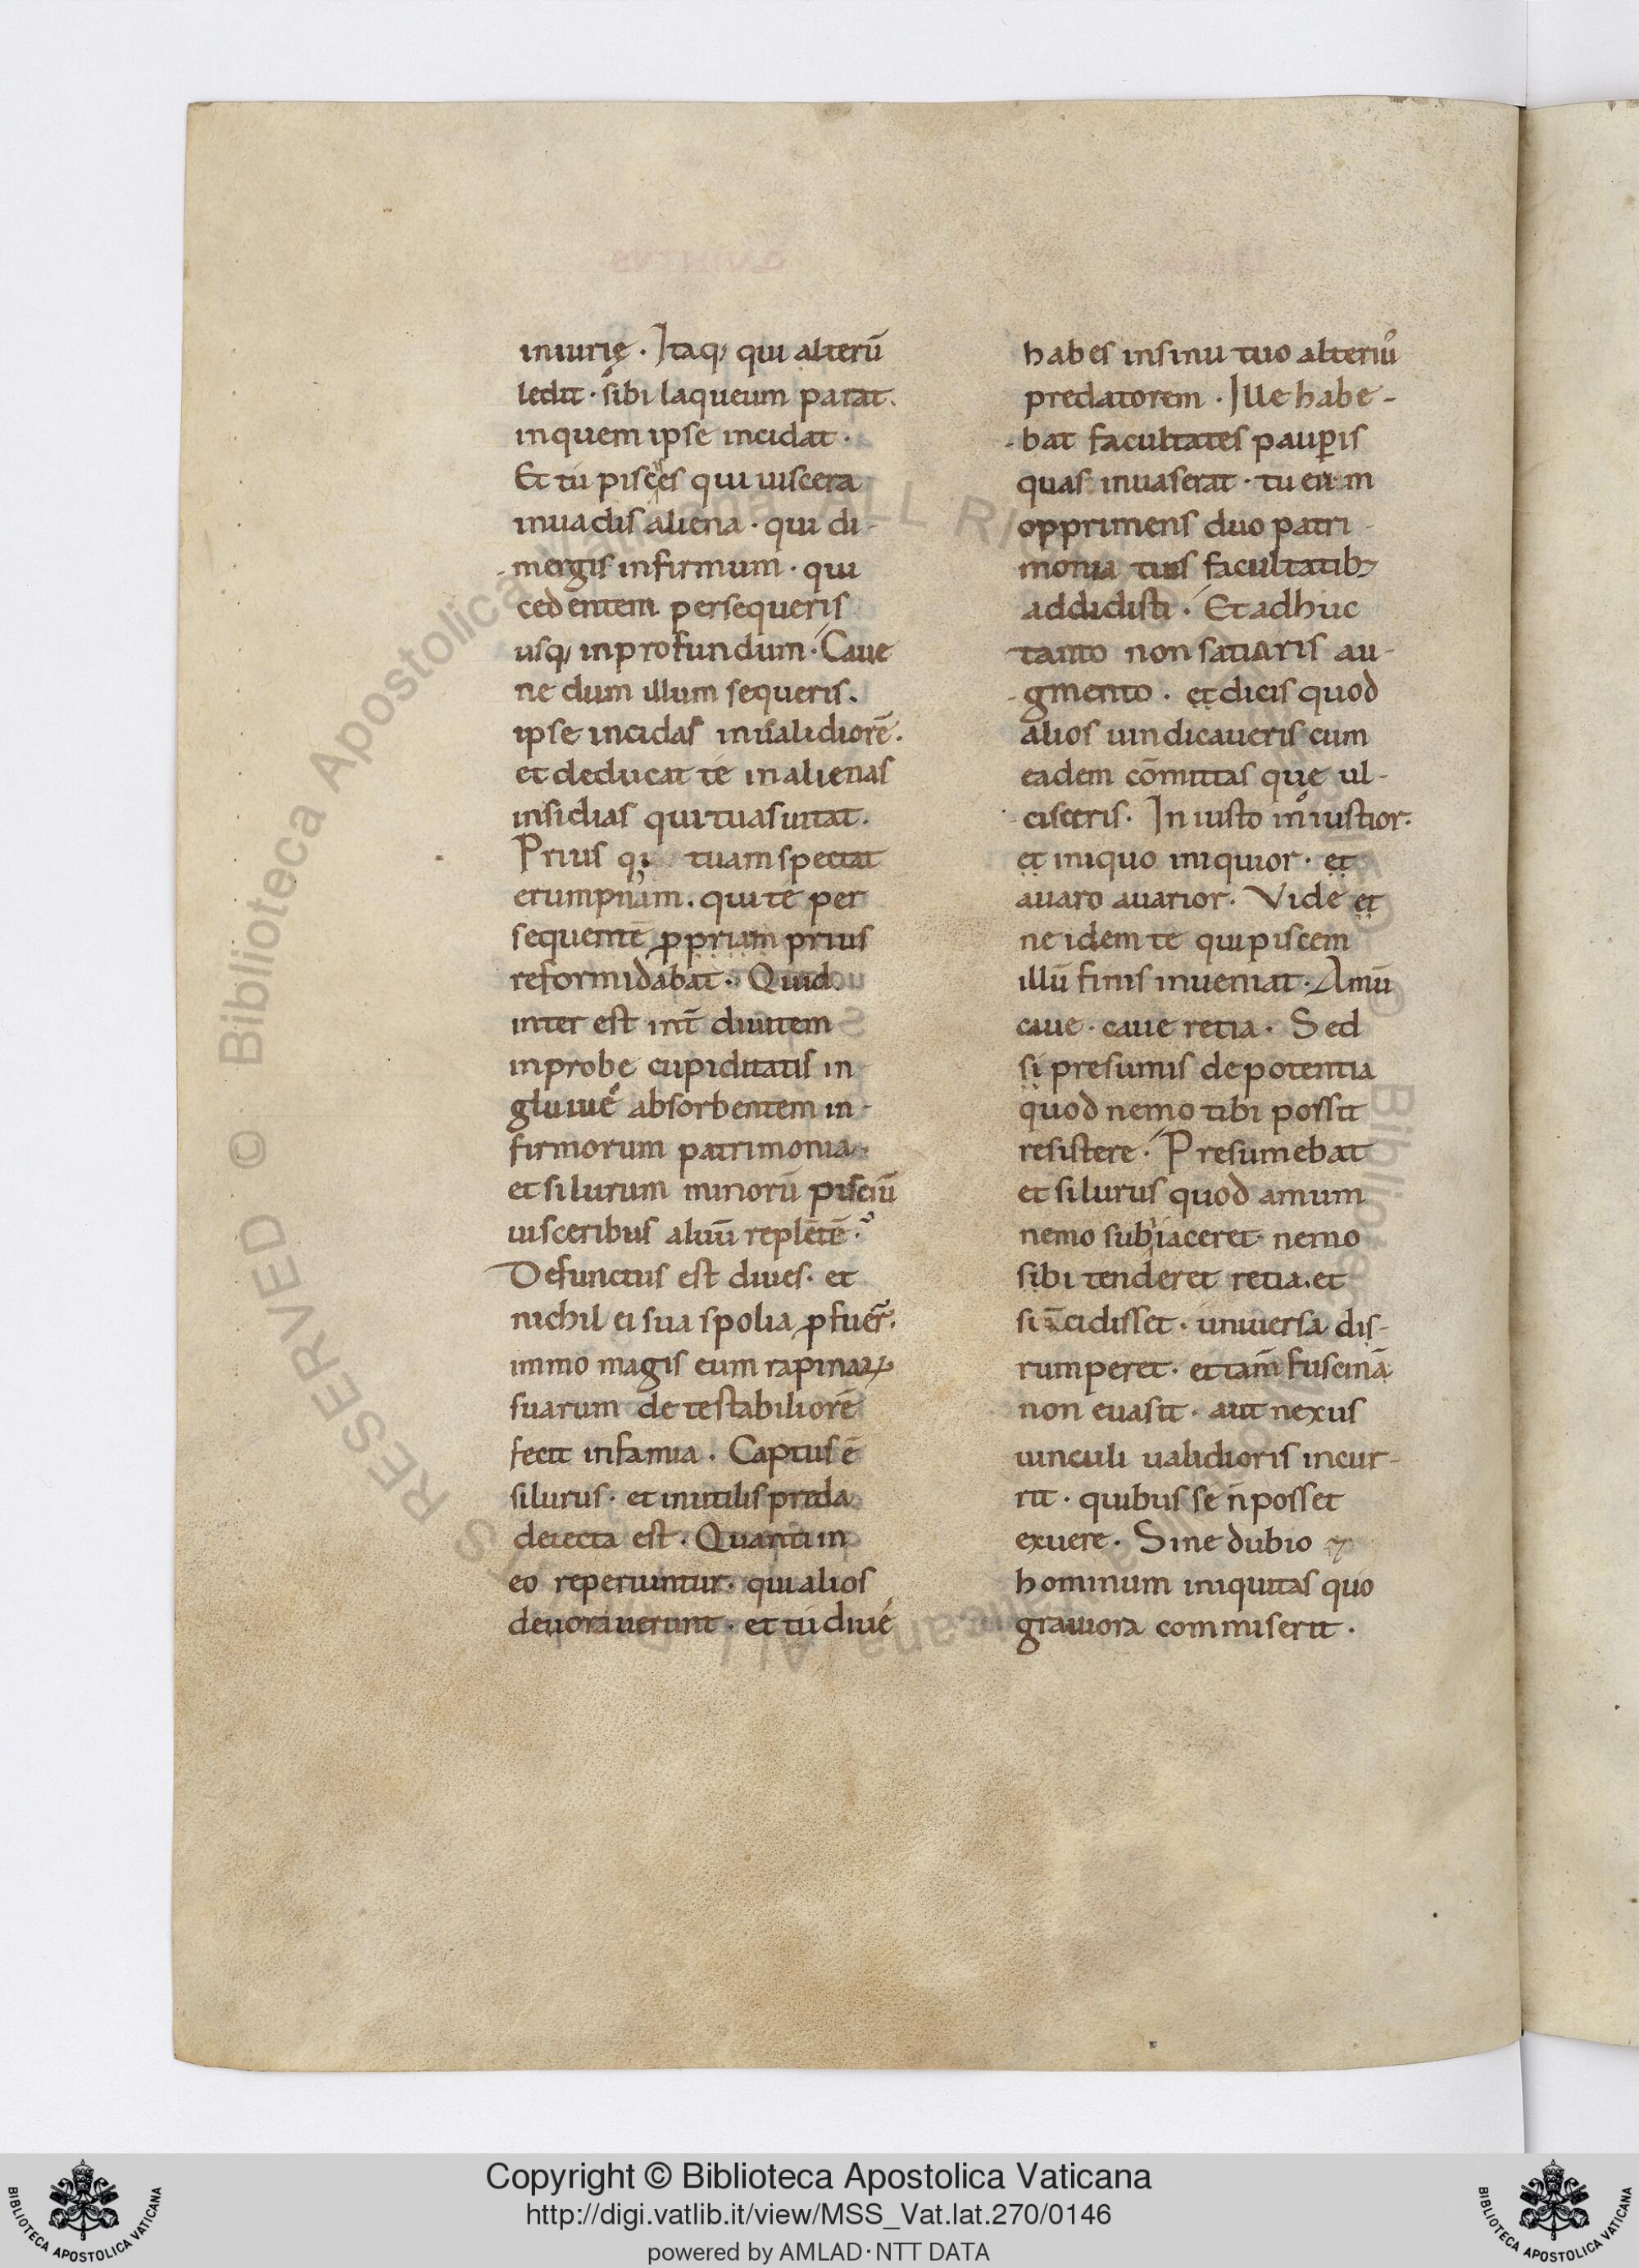 iniurię · Itaq; qui alterū
ledit · sibi laqueum parat.
inquem ipse incidat ·
Et tu pisces qui uiscera
inuadis aliena · qui di-
mergis infirmum · qui
cedentem persequeris
usq; inprofundum · Caue
ne dum illum sequeris.
ipse incidas inualidiorē.
et deducat te inalienas
insidias qui tuas uitat.
Prius tuam spectat
erumpnam. qui te per
sequentē ꝓpriam prius
reformidabat · Quid
inter est int̄ diuitem
inprobe cupiditatis in
gluuie absorbentem in-
firmorum patrimonia
et silurum minorū pisciū
uisceribus aluū repletē ·
Defunctus est diues · et
nichil ei sua spolia ꝓfuer̄.
immo magis eum rapinaꝝ
suarum detestabiliorē
fecit infamia . Captus ē
silurus · et inutilis preda
detecta est . Quanti in
eo reperiuntur · qui alios
deuorauerunt · et tu diue
habes insinu tuo alteriꝰ
predatorem · Ille habe-
bat facultates pauꝑis
quas inuaserat · tu eum
opprimens duo patri-
monia tuis facultatibꝫ
addidisti · Et adhuc
tanto non satiaris au-
gmento · et dicis quod
alios uindicaueris cum
eadem cōmittas que ul-
cisceris. In iusto iniustior.
et iniquo iniquior · et
auaro auarior. Vide et
ne idem te qui piscem
illū finis inueniat. Amū
caue · caue retia. Sed
si presumis depotentia
quod nemo tibi possit
resistere · Presumebat
et silurus quod amum
nemo subiaceret nemo
sibi tenderet retia. et
si īcidisset · uniuersa dis-
rumperet · et tam̄ fuscinā
non euasit · aut nexus
uinculi ualidioris incur-
rit · quibus se n̄ posset
exuere. Sine dubio
hominum iniquitas quo
grauiora commiserit ·
Copyright © Biblioteca Apostolica Vaticana
http://digi.vatlib.it/view/MSS_Vat.lat.270/0146
powered by AMLAD·NTT DATA
BIBLIOTECA APOSTOLICA VATICANA
BIBLIOTECA APOSTOLICA VATICANA